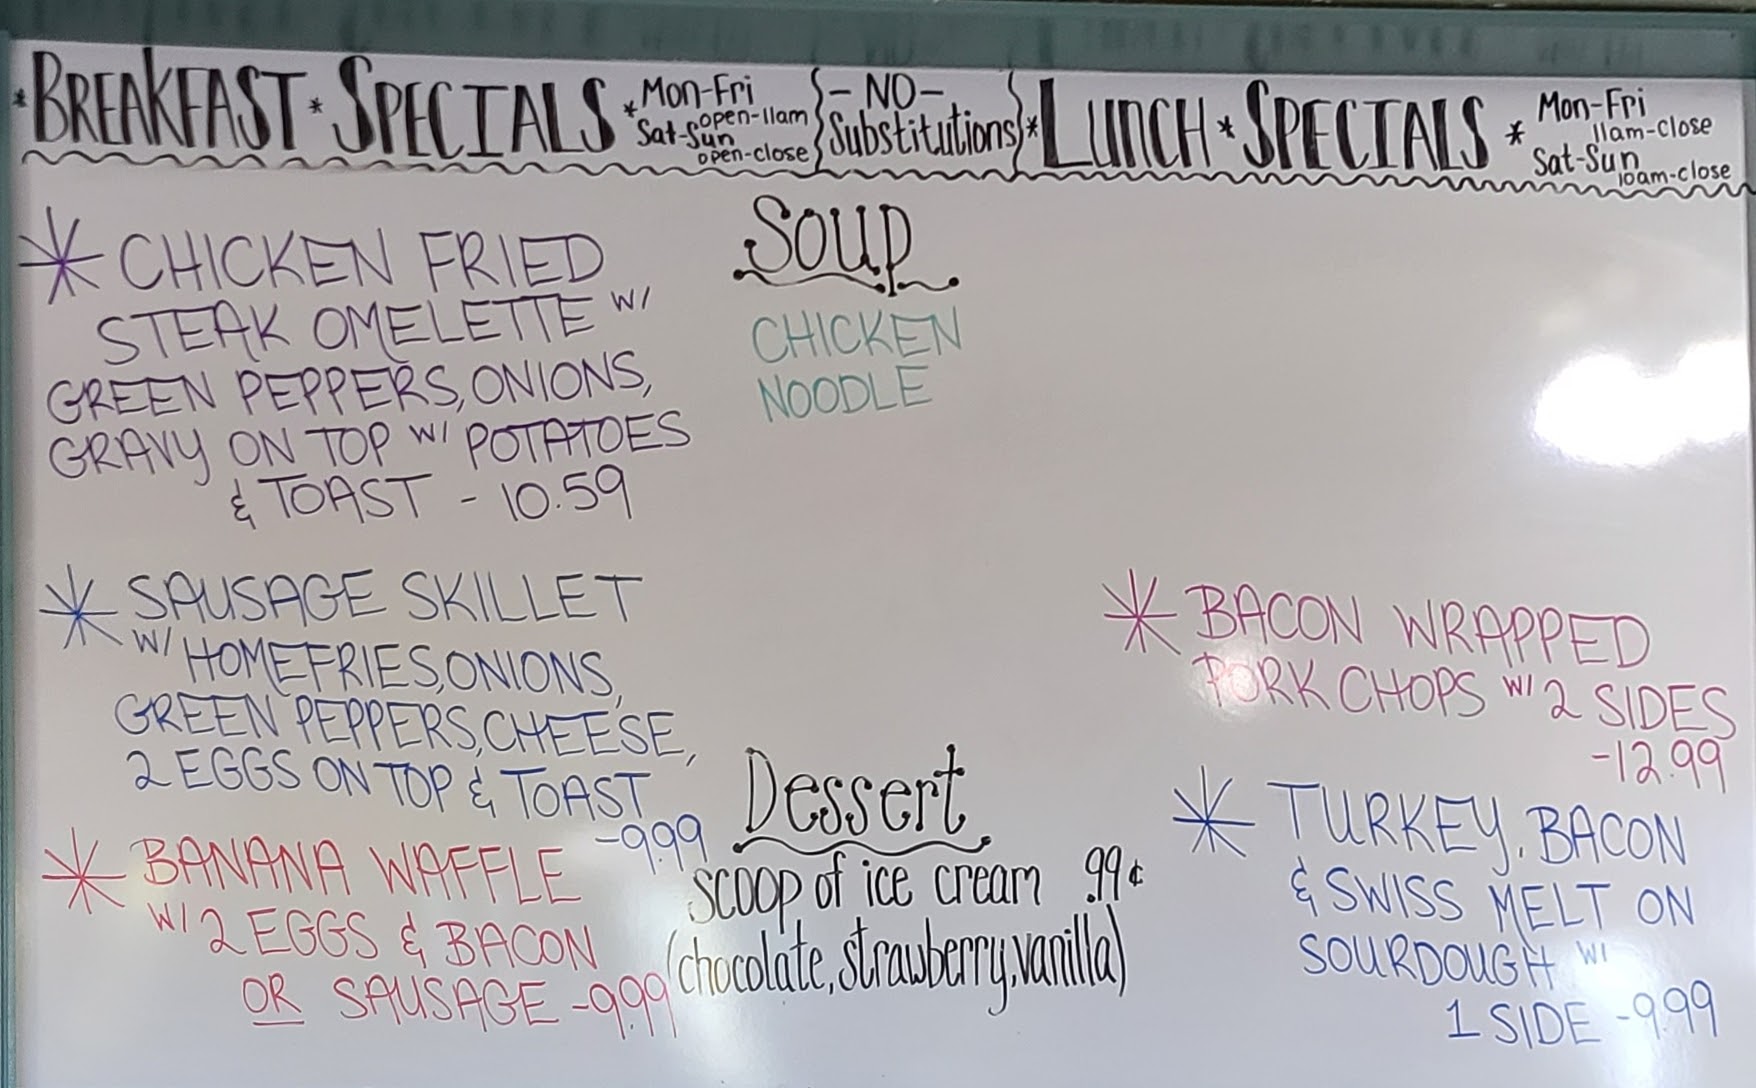 *BREAKFAST*SPECIALS*Mon-Fri
open-11am
Sat-Sun
open-close
-NO-
Substitutions
*LUNCH*SPECIALS*Mon-Fri
11am-close
Sat-Sun
10am-close
* CHICKEN FRIED
STEAK OMELETTE W/
GREEN PEPPERS, ONIONS,
GRAVY ON TOP W/ POTATOES
& TOAST - 10.59
* SAUSAGE SKILLET
W/ HOMEFRIES, ONIONS,
GREEN PEPPERS, CHEESE,
2 EGGS ON TOP & TOAST
-9.99
* BANANA WAFFLE
W/ 2 EGGS & BACON
OR SAUSAGE -9.99
Soup
CHICKEN
NOODLE
Dessert
scoop of ice cream .99¢
(chocolate, strawberry, vanilla)
* BACON WRAPPED
PORK CHOPS W/ 2 SIDES
-12.99
* TURKEY, BACON
& SWISS MELT ON
SOURDOUGH W/
1 SIDE -9.99